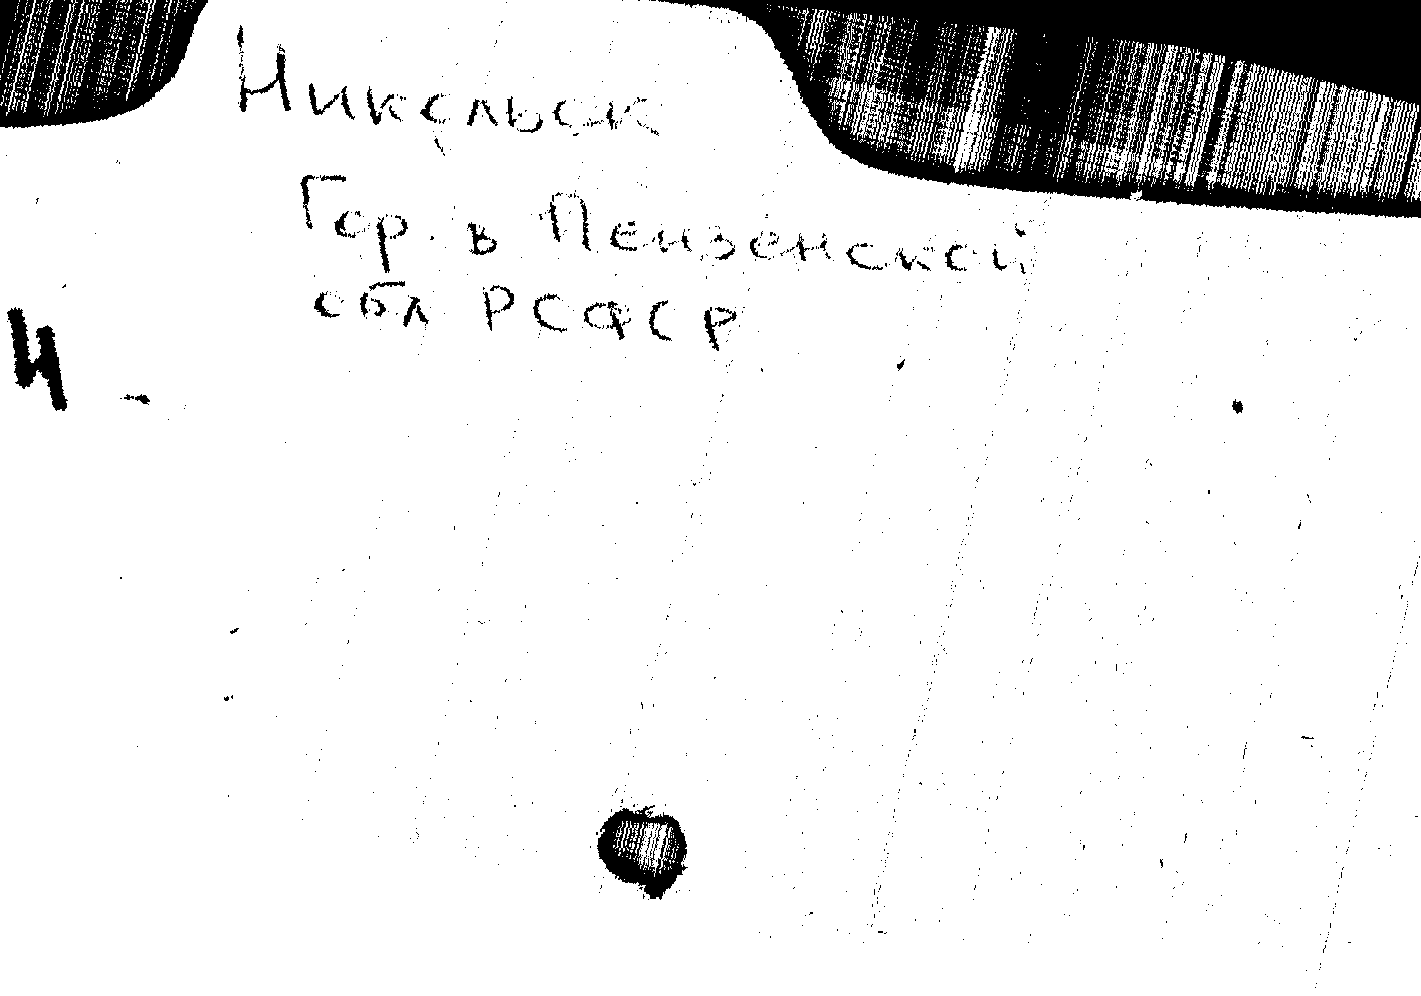 Никольск
Гор. в Пензенской
обл РСФСР
4